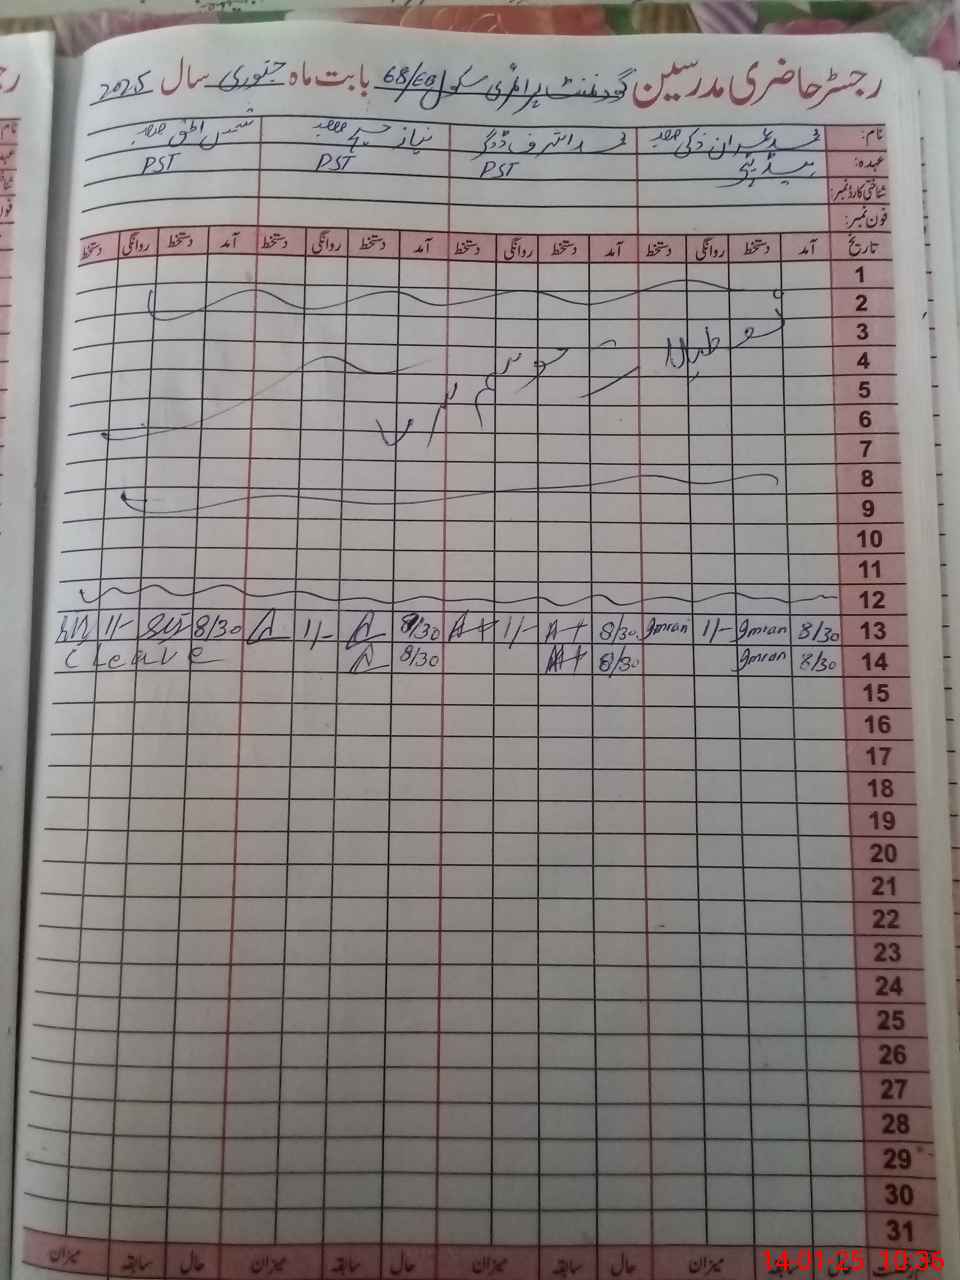 رجسٹر حاضری مدرسین گورنمنٹ پرائمری سکول 68/EB بابت ماہ جنوری سال 2025
نام: محمد عمران ذکی صاحب محمد اشرف ڈوگر نیاز صاحب شمس الحق صاحب
عہدہ: ہیڈ ٹیچر PST PST PST
شناختی کارڈ نمبر:
فون نمبر:
تاریخ آمد دستخط روانگی دستخط آمد دستخط روانگی دستخط آمد دستخط روانگی دستخط آمد دستخط روانگی دستخط
1
2
3
تعطیلات
4
موسم
5
6
سرما
7
8
9
10
11
12
13 8/30 Imran 1/- Imran 8/30 1/- 8/30 1/- 8/30 1/-
14 8/30 Imran 8/30 8/30 C leave
15
16
17
18
19
20
21
22
23
24
25
26
27
28
29
30
31
حال سابقہ میزان حال سابقہ میزان حال سابقہ میزان حال سابقہ میزان
14-01-25 10:36